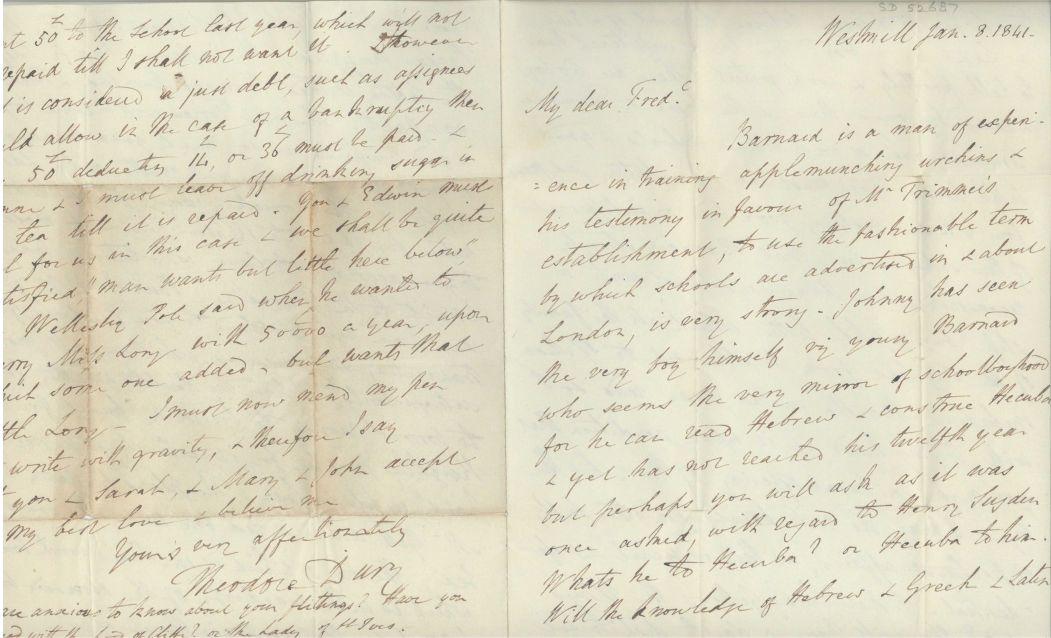 50£ to the school last year, which will not
repaid till I shall not want it. I however
is considered a just debt, such as assignees
allow in the case of a bankruptcy then
50£ deducting 14£, or 36£ must be paid - &
& I must leave off drinking sugar in
tea till it is repaid. You & Edwin must
for us in this case & we shall be quite
"man wants but little here below",
Wellesley Pole said when he wanted to
Miss Long with 50000 a year, upon
some one added - but wants that
Long -
I must now mend my pen
write with gravity, & therefore I say
you & Sarah, & Mary & John accept
my best love & believe me
Yours very affectionately
Theodore Dury
are anxious to know about your flittings? Have you
with the Lord of Cliffe? or the Lady of St Ives.
SD 52687
Westmill Jan. 8. 1841.
My dear Fredc
Barnard is a man of experi-
=ence in training applemunching urchins &
his testimony in favour of Mr Trimmer's
establishment, to use the fashionable term
by which schools are advertised in & about
London, is very strong - Johnny has seen
the very boy himself viz young Barnard
who seems the very mirror of schoolboyhood
for he can read Hebrew & construe Hecuba
& yet has not reached his twelfth year
but perhaps you will ask as it was
once asked, with regard to Henry Sugden
Whats he to Hecuba? or Hecuba to him.
Will the knowledge of Hebrew & Greek & Latin